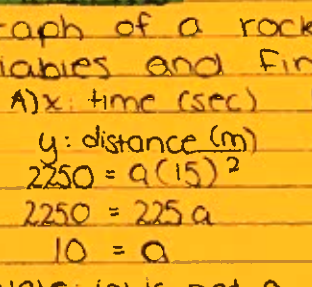 aph of a rock
iables and fin
A) x: time (sec)
y: distance (m)
2250 = a(15)²
2250 = 225a
10 = a
is not a